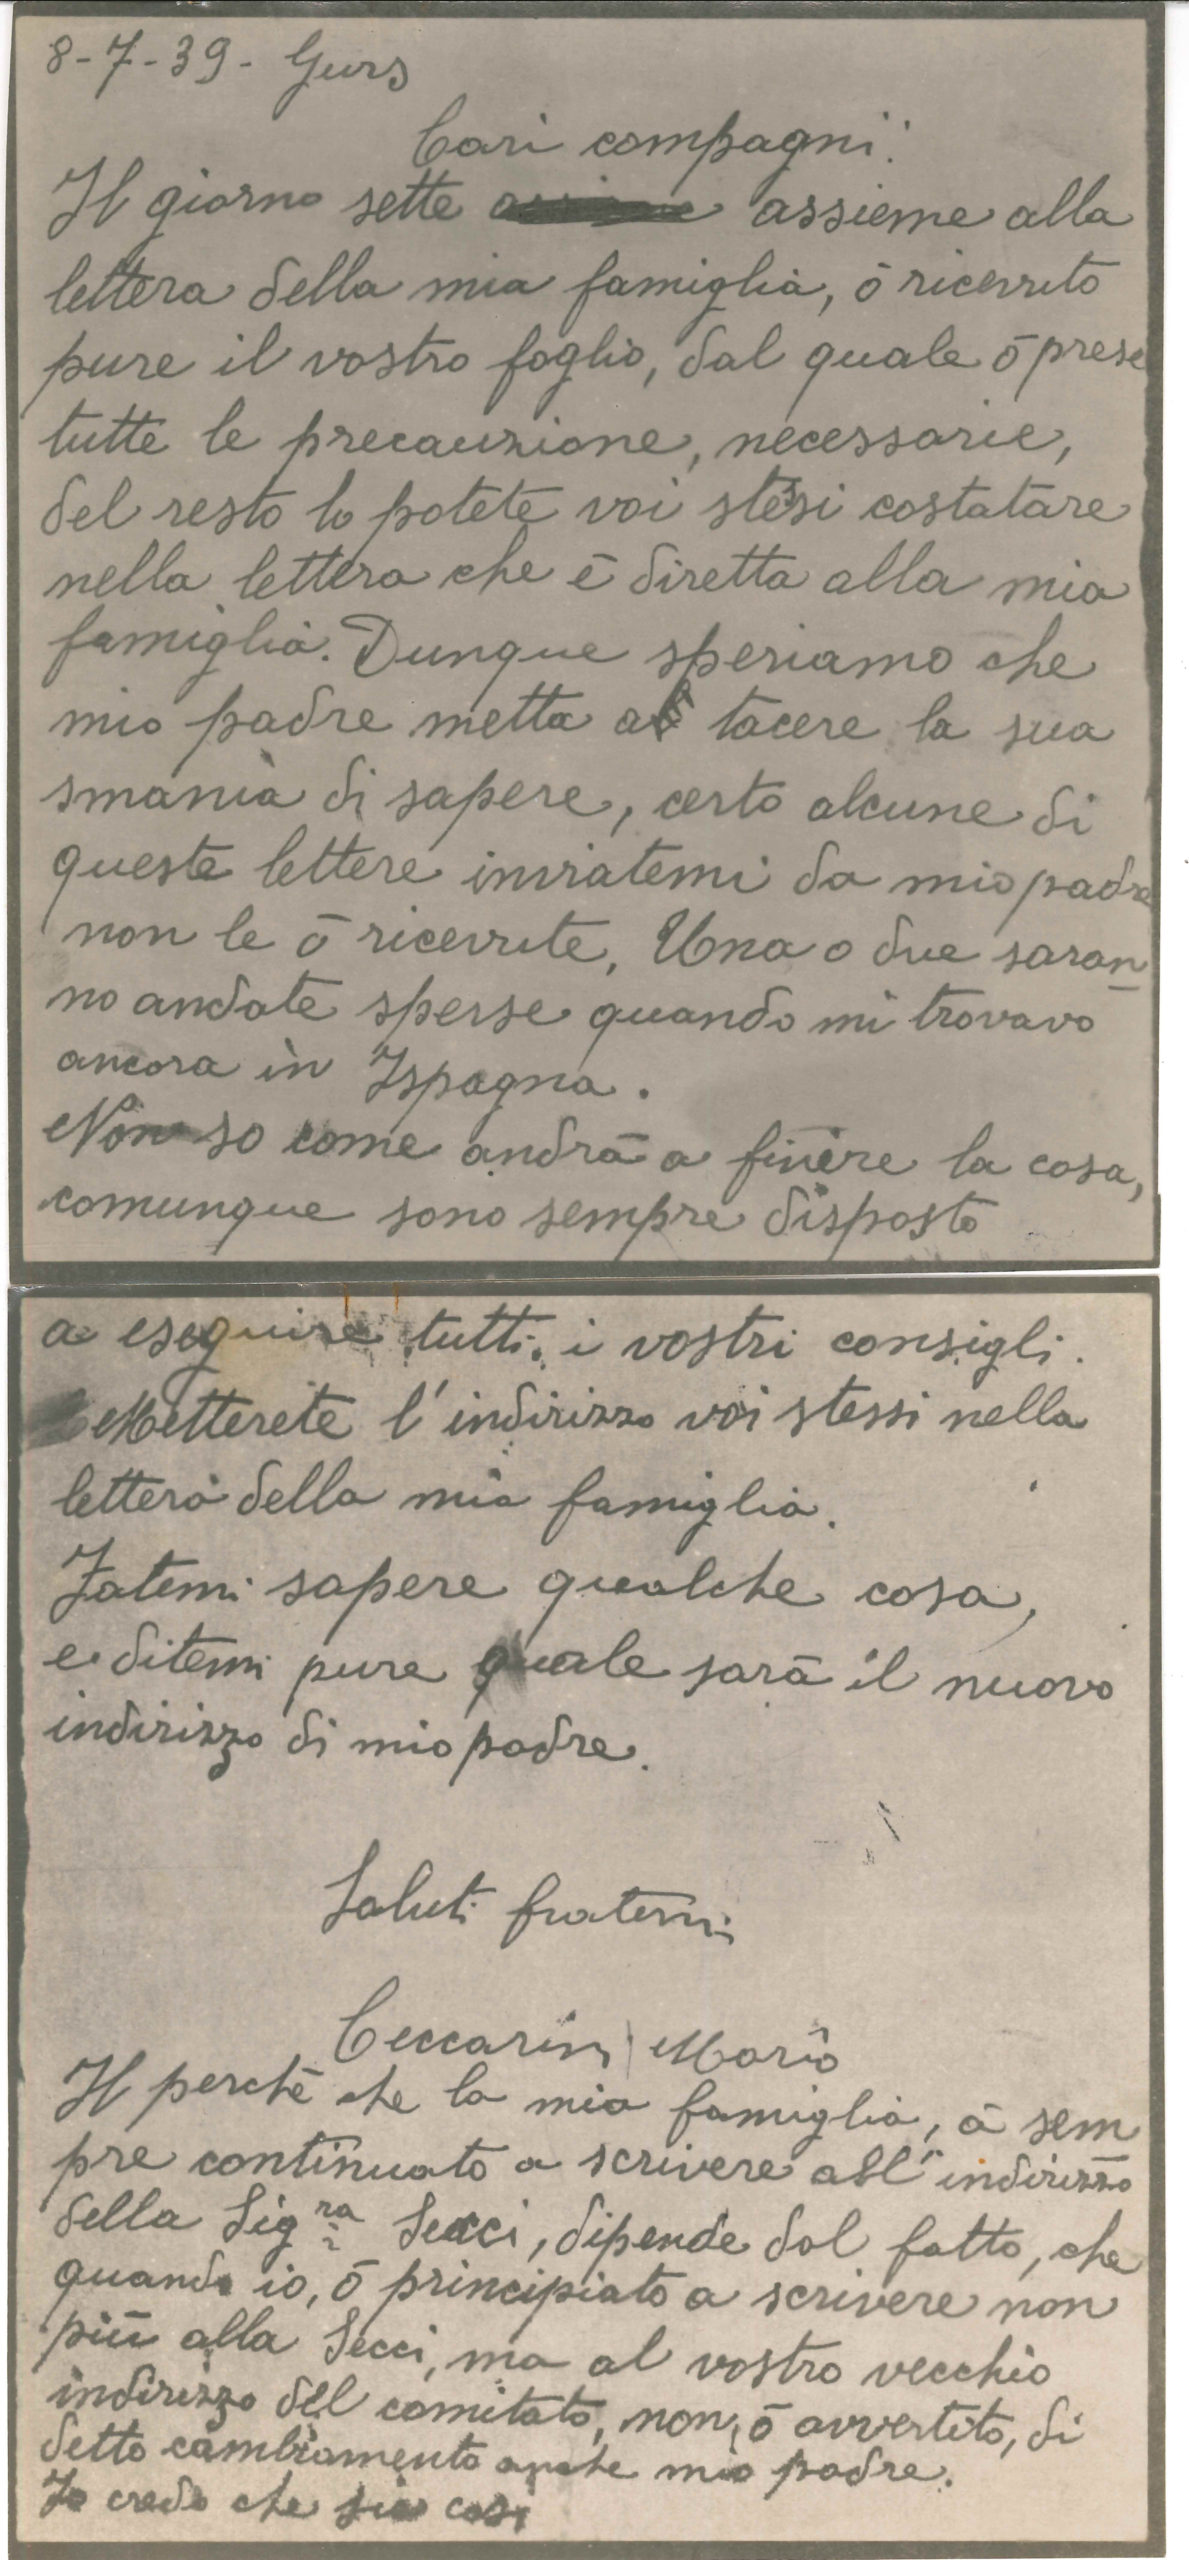 8-7-39- Gurs
Cari compagni:
Il giorno sette assieme alla
lettera della mia famiglia, ō ricevuto
pure il vostro foglio, dal quale ō prese
tutte le precauzione, necessarie,
del resto lo potete voi stessi costatare
nella lettera che ē diretta alla mia
famiglia. Dunque speriamo che
mio padre metta a tacere la sua
smania di sapere, certo alcune di
queste lettere inviatemi da mio padre
non le ō ricevute, Una o due saran
no andate sperse quando mi trovavo
ancora in Ispagna.
Non so come andrā a finire la cosa,
comunque sono sempre disposto
a eseguire tutti i vostri consigli.
Metterete l'indirizzo voi stessi nella
lettera della mia famiglia.
Fatemi sapere qualche cosa,
e ditemi pure quale sarā il nuovo
indirizzo di mio padre.
Saluti fraterni
Ceccarini Mario
Il perchē che la mia famiglia, ā sem
pre continuato a scrivere all'indirizzo
della Sig.ra Secci, dipende dal fatto, che
quando io, ō principiato a scrivere non
piū alla Secci, ma al vostro vecchio
indirizzo del comitato, non, ō avvertito, di
detto cambiamento anche mio padre.
Io credo che sia cosi